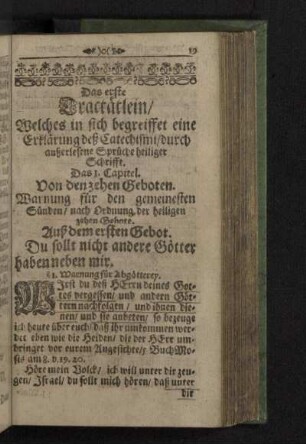 19
Das erste
Tractätlein/
Welches in sich begreiffet eine
Erklärung deß Catechismi/durch
außerlesene Sprüche heiliger
Schrifft.
Das 1. Capitel.
Von den zehen Geboten.
Warnung für den gemeinesten
Sünden/ nach Ordnung der heiligen
zehen Gebote.
Auß dem ersten Gebot.
Du sollt nicht andere Götter
haben neben mir.
§ 1. Warnung für Abgötterey.
Wirst du deß HErrn deines Got-
tes vergessen/ und andern Göt-
tern nachfolgen/ und ihnen die-
nen/ und sie anbeten/ so bezeuge
ich heute über euch/ daß ihr umkommen wer-
det eben wie die Heiden/ die der HErr um-
bringet vor eurem Angesichte/5 Buch Mo-
sis am 8. v. 19. 20.
Höre mein Volck/ ich will unter dir zeu-
gen/ Israel/ du sollt mich hören/ daß unter
dir